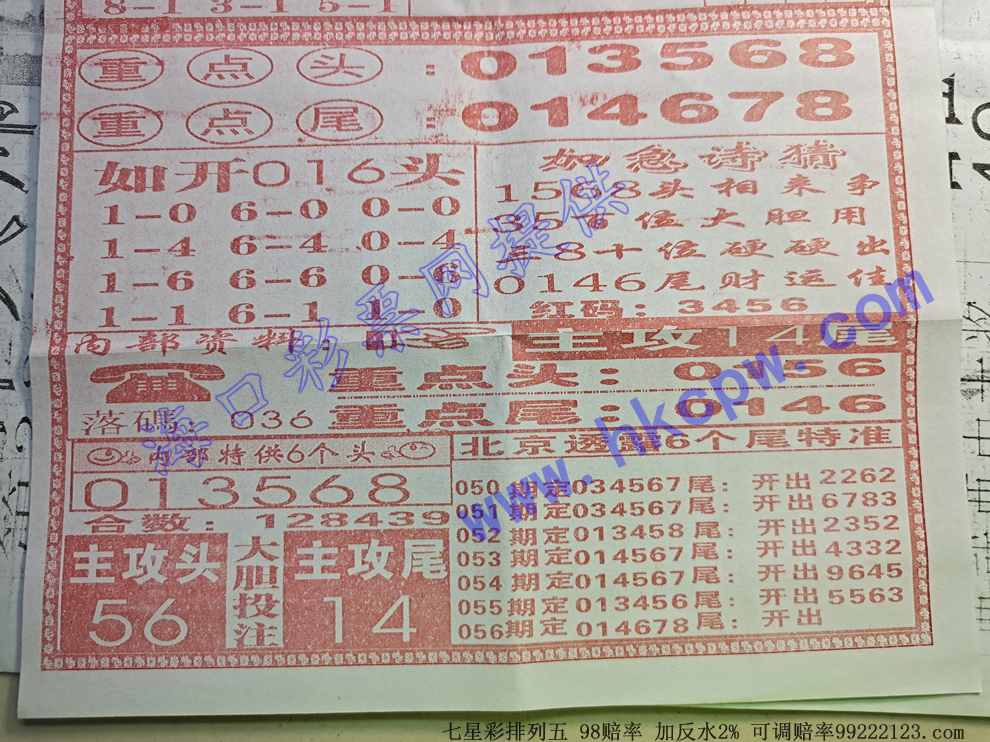 8-1 3-1 5-1
重点头：013568
重点尾：014678
如开016头
1-0 6-0 0-0
1-4 6-4 0-4
1-6 6-6 0-6
1-1 6-1 1-0
如急诗猜
1568头相来争
357百位大胆用
三8十位硬硬出
0146尾财运佳
红码：3456
内部资料：
主攻14尾
重点头：0156
落碼：036
重点尾：0146
内部特供6个头
013568
合数：128439
主攻头
56
大胆投注
主攻尾
14
北京透露6个尾特准
050期定034567尾：开出2262
051期定034567尾：开出6783
052期定013458尾：开出2352
053期定014567尾：开出4332
054期定014567尾：开出9645
055期定013456尾：开出5563
056期定014678尾：开出
海口彩票网提供
www.hkcpw.com
七星彩排列五 98赔率 加反水2% 可调赔率99222123.com